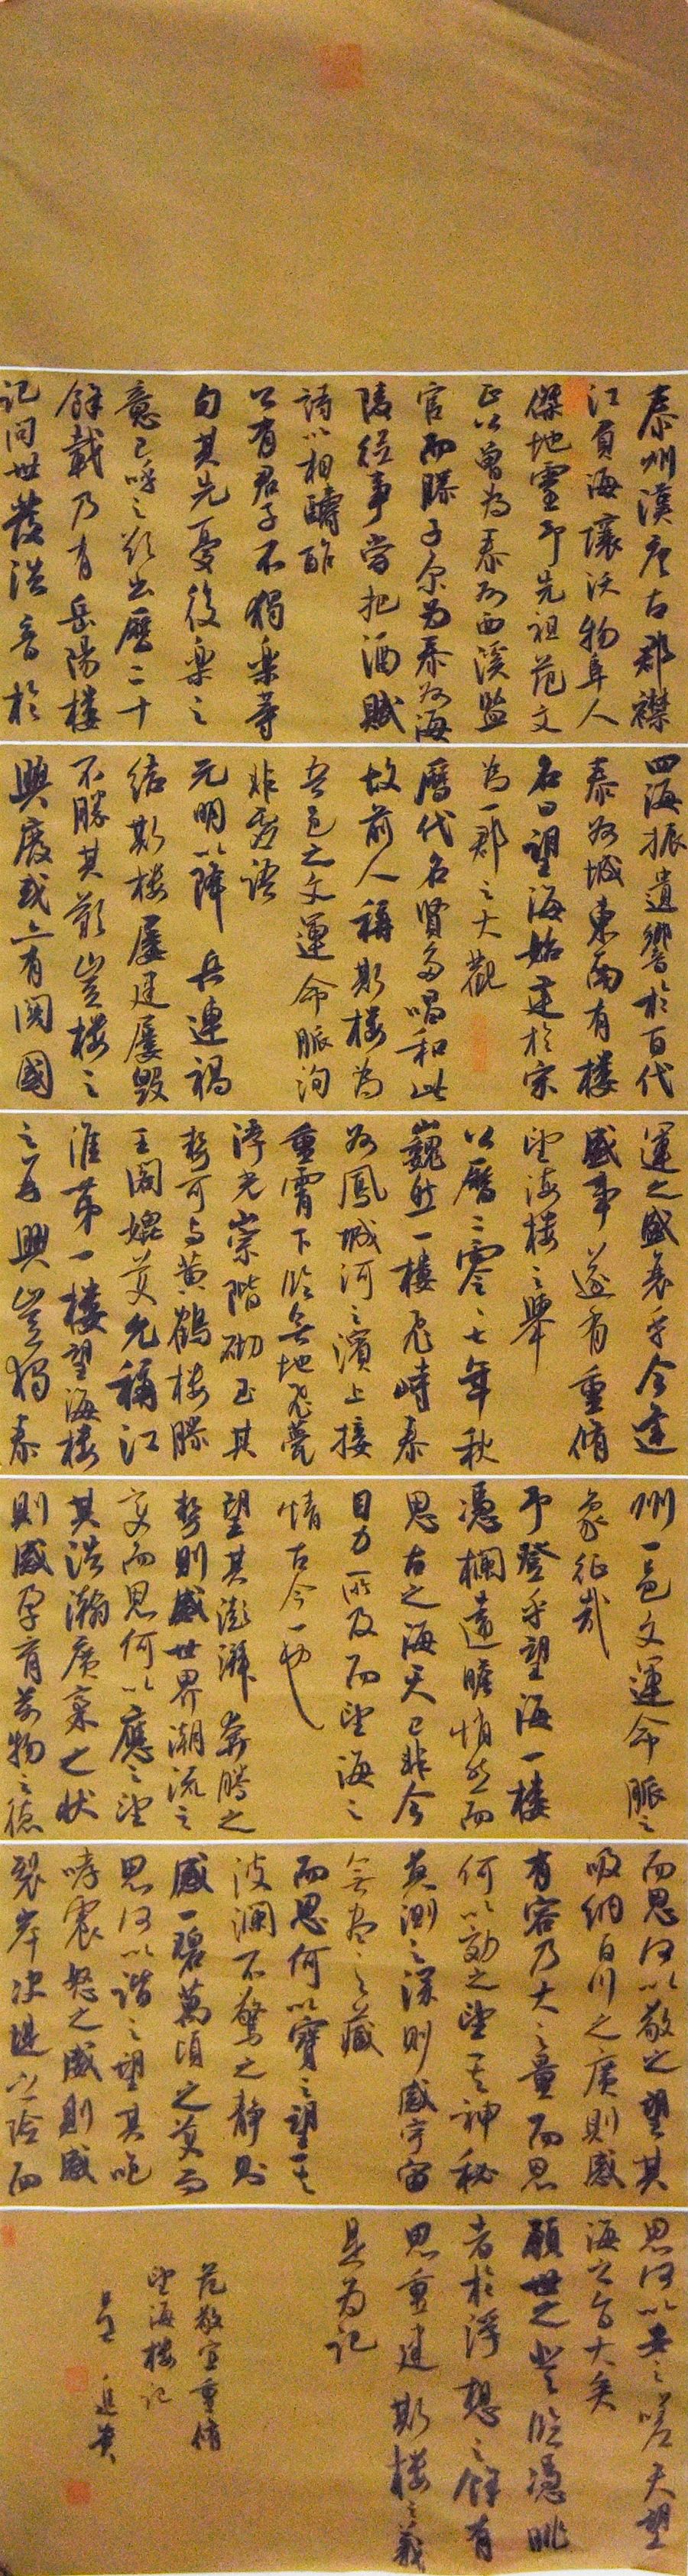 泰州漢唐古郡襟
江負海壤沃物阜人
傑地靈予先祖范文
正公曾為泰州西溪鹽
官而滕子京為泰州海
陵從事嘗把酒賦
詩以相酬酢
公有君子不獨樂等
句其先憂後樂之
意已呼之欲出歷二十
餘載乃有岳陽樓
記問世發浩音於
四海振遺響於百代
泰州城東南有樓
名曰望海始建於宋
為一郡之大觀
歷代名賢多唱和此
故前人稱斯樓為
吾邑之文運命脈洵
非虛語
元明以降兵連禍
結斯樓屢建屢毀
不勝其數豈樓之
興廢或亦有關國
運之盛衰乎今逢
盛事遂有重脩
望海樓之舉
公曆二零零七年秋
巍然一樓飛峙泰
州鳳城河之濱上接
重霄下臨無地飛甍
浮光崇階砌玉其
勢可與黃鶴樓滕
王閣媲美允稱江
淮第一樓望海樓
之再興豈獨泰
州一邑文運命脈之
象征哉
予登乎望海一樓
憑欄遠瞻悄然而
思古之海天已非今
目力所及而望海之
情古今一也
望其澎湃奔騰之
勢則感世界潮流之
變而思何以應之望
其浩瀚廣袤之狀
則感孕育萬物之德
而思何以敬之望其
吸納百川之廣則感
有容乃大之量而思
何以效之望其神秘
莫測之深則感宇宙
無盡之藏
而思何以寶之望其
波瀾不驚之靜則
感一碧萬頃之美而
思何以諧之望其咆
哮震怒之威則感
裂岸決堤之險而
思何以安之嗟夫望
海之旨大矣
願世之登臨憑眺
者於浮想之餘有
思重建斯樓之義
是為記
范敬宜重脩
望海樓記